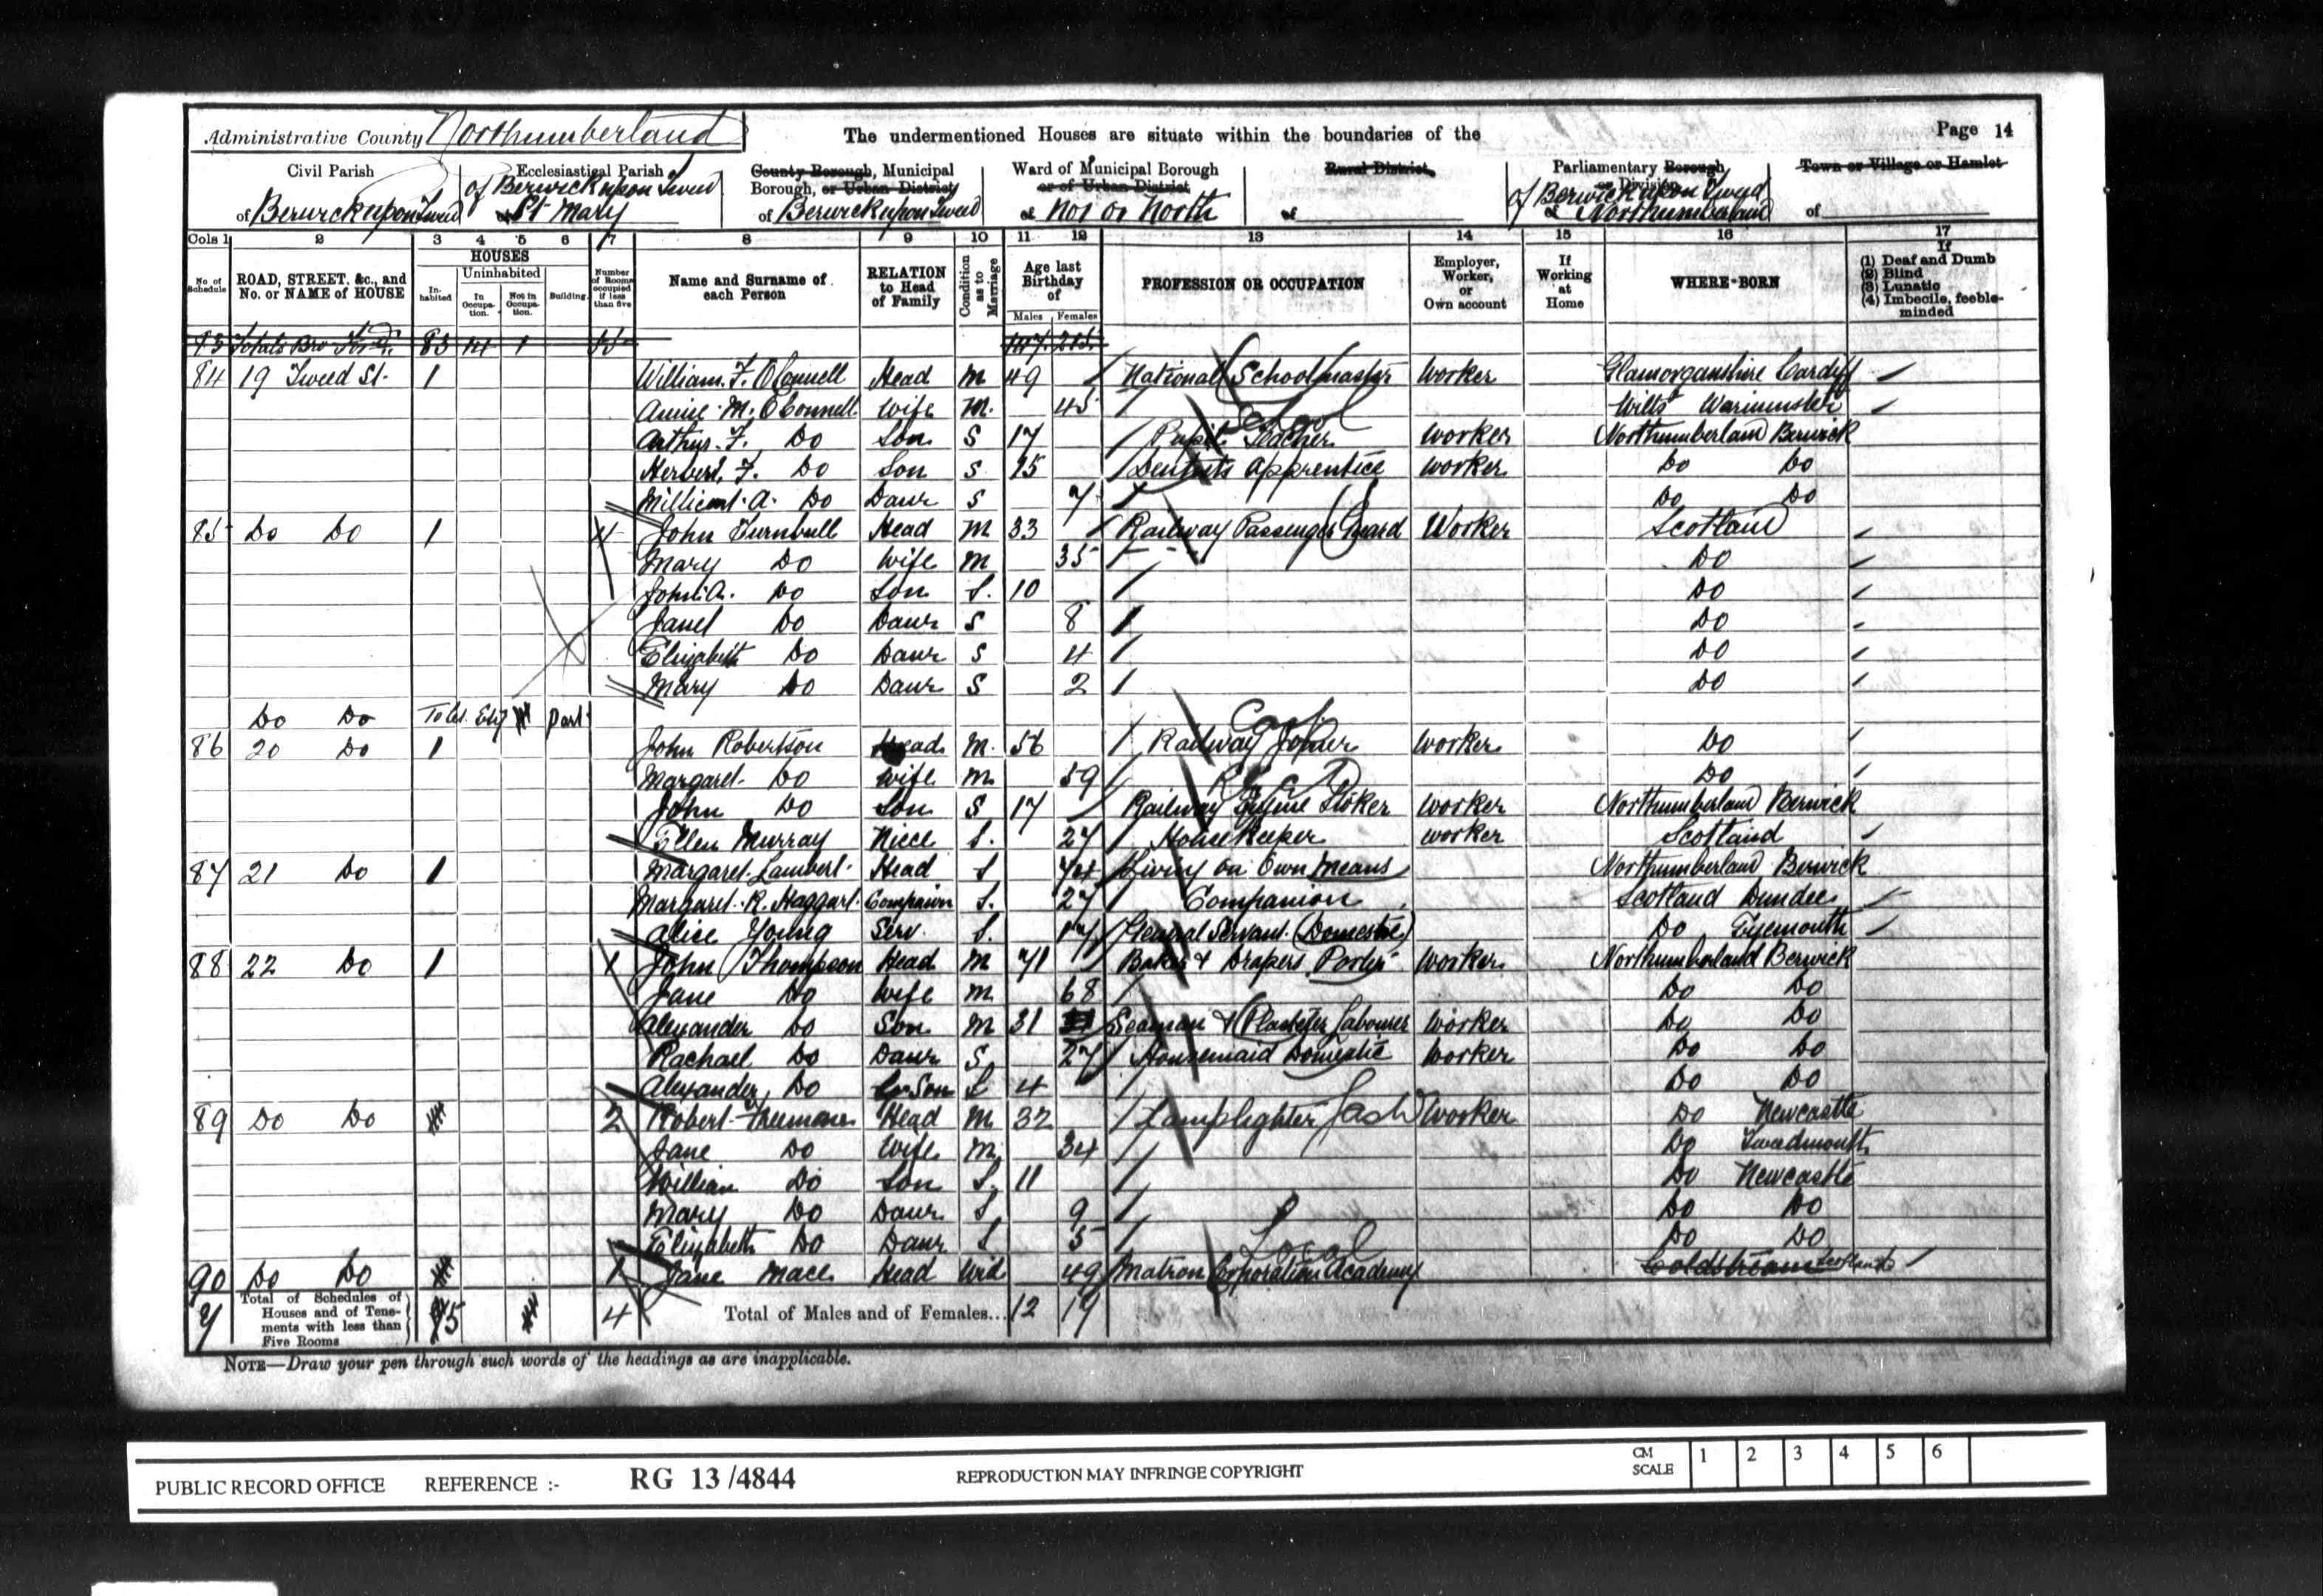 Administrative County Northumberland The undermentioned Houses are situate within the boundaries of the Page 14
Civil Parish Ecclesiastical Parish County Borough, Municipal Ward of Municipal Borough Rural District Parliamentary Borough Town or Village or Hamlet
of Berwick upon Tweed of Berwick upon Tweed St Mary Borough, or Urban District of Berwick upon Tweed or of Urban District of No1 or North of or Division of Berwick upon Tweed Northumberland of
Cols 1 2 3 4 5 6 7 8 9 10 11 12 13 14 15 16 17
No of Schedule ROAD, STREET, &c., and No. or NAME of HOUSE HOUSES Inhabited Uninhabited In Occupation. Not in Occupation. Building. Number of Rooms occupied if less than five Name and Surname of each Person RELATION to Head of Family Condition as to Marriage Age last Birthday of Males Females PROFESSION OR OCCUPATION Employer, Worker, or Own account If Working at Home WHERE BORN If (1) Deaf and Dumb (2) Blind (3) Lunatic (4) Imbecile, feeble-minded
84 19 Tweed St. 1 William. F. O'Connell Head M 49 National Schoolmaster Worker Glamorganshire Cardiff
Annie M. O'Connell Wife M. 45 Wilts Warminster
School
Arthur. F. Do Son S 17 Pupil Teacher Worker Northumberland Berwick
Herbert. F. Do Son S 15 Dentists Apprentice Worker Do Do
Millicent. A. Do Daur S 7 Do Do
85 Do Do 1 4 John Turnbull Head M 33 Railway Passenger Guard Worker Scotland
Mary Do Wife M 35 Do
John A. Do Son S. 10 Do
Janet Do Daur S 8 Do
Elizabeth Do Daur S 4 Do
Mary Do Daur S 2 Do
Do Do Part
86 20 Do 1 John Robertson Head M. 56 Railway Joiner Worker Do
Margaret Do Wife M 59 Do
John Do Son S 17 Railway Engine Stoker Worker Northumberland Berwick
Ellen Murray Niece S. 27 Housekeeper Worker Scotland
87 21 Do 1 Margaret Lambert Head S 74 Living on Own Means Northumberland Berwick
Margaret. R. Haggart Companion S. 27 Companion Scotland Dundee
Alice Young Serv. S. 17 General Servant (Domestic) Do Eyemouth
88 22 Do 1 1 John Thompson Head M 71 Baker & Drapers Porter Worker Northumberland Berwick
Jane Do Wife M 68 Do Do
Alexander Do Son M 31 Seaman & Plasterer Labourer Worker Do Do
Rachael Do Daur S 27 Housemaid Domestic Worker Do Do
Alexander Do Gr Son S 4 Do Do
89 Do Do 2 Robert Head M 32 Lamplighter Worker Do Newcastle
Jane Do Wife M. 34 Do Tweedmouth
William Do Son S. 11 Do Newcastle
Mary Do Daur S 9 Do Do
Elizabeth Do Daur S 5 Do Do
Local
90 Do Do 1 Jane Mace Head Wid 49 Matron Corporation Academy Coldstream Scotland
7 Total of Schedules of Houses and of Tenements with less than Five Rooms 5 4 Total of Males and of Females... 12 19
NOTE—Draw your pen through such words of the headings as are inapplicable.
PUBLIC RECORD OFFICE REFERENCE :- RG 13/4844 REPRODUCTION MAY INFRINGE COPYRIGHT CM SCALE 1 2 3 4 5 6